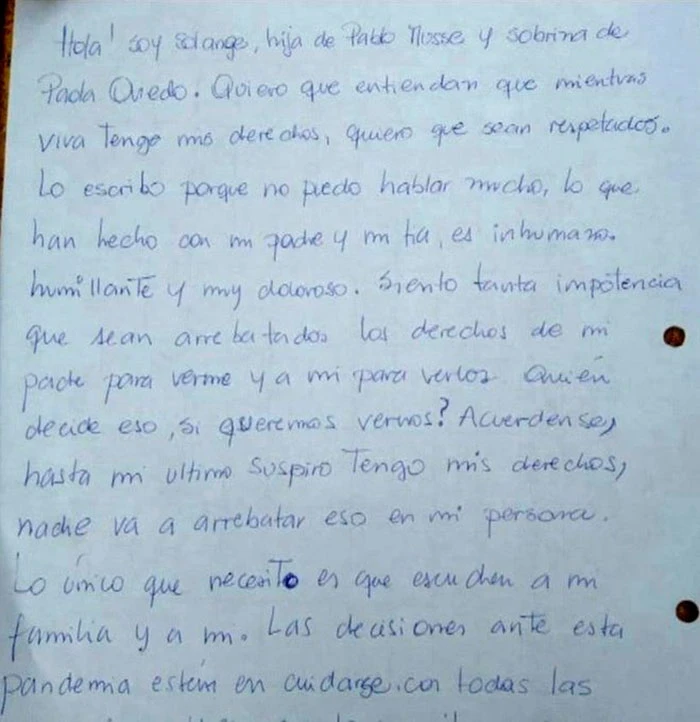 Hola! soy Solange, hija de Pablo Musse y sobrina de
Paola Oviedo. Quiero que entiendan que mientras
viva Tengo mis derechos, quiero que sean respetados.
Lo escribo porque no puedo hablar mucho, lo que
han hecho con mi padre y mi tia, es inhumano.
humillante y muy doloroso. Siento tanta impotencia
que sean arrebatados los derechos de mi
padre para verme y a mi para verlos Quién
decide eso, si queremos vernos? Acuerdense,
hasta mi ultimo suspiro Tengo mis derechos,
nadie va a arrebatar eso en mi persona.
Lo único que necesito es que escuchen a mi
familia y a mi. Las decisiones ante esta
pandemia están en cuidarse. con todas las